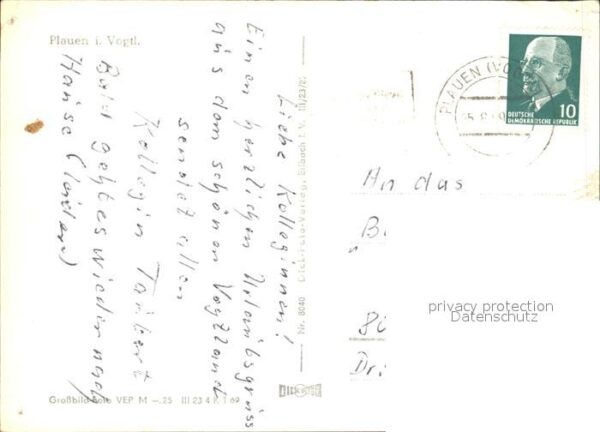 Plauen i. Vogtl.
Liebe Kolleginnen!
Einen herzlichen Urlaubsgruss
aus dem schönen Vogtland
sendet allen
Kollegin
Bald geht es wieder nach
Hause (leider)
Nr. 8040 Dick-Foto-Verlag, Erlbach i. V. III/23/
DICK FOTO
Großbild-Foto VEP M -.25 III 23 4 K 1 69
PLAUEN (VOGTL)
10
DEUTSCHE
DEMOKRATISCHE REPUBLIK
An das
privacy protection
Datenschutz